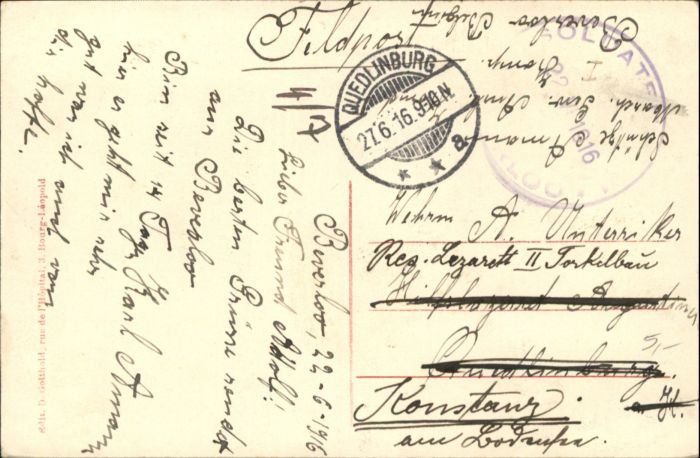 Feldpost
QUEDLINBURG
27.6.16.9-10N.
a
SOLDATE
BEVERLOO
Beverloo Belgien
I Komp.
4/7
Beverloo, 22-6-1916
Lieber Freund Adolf!
Die besten Grüsse sendet
aus Beverloo
Karl Amann
Bin seit 14 Tage
hier es geht mir sehr
gut was ich auch von
dir hoffe.
Wehrm. A. Unterriker
Res. Lazarett II Torkelbau
Quedlinburg.
a. H.
Konstanz
am Bodensee.
5,-
Edit. b. Gotthold, rue de l'Hôpital, 3, Bourg-Léopold